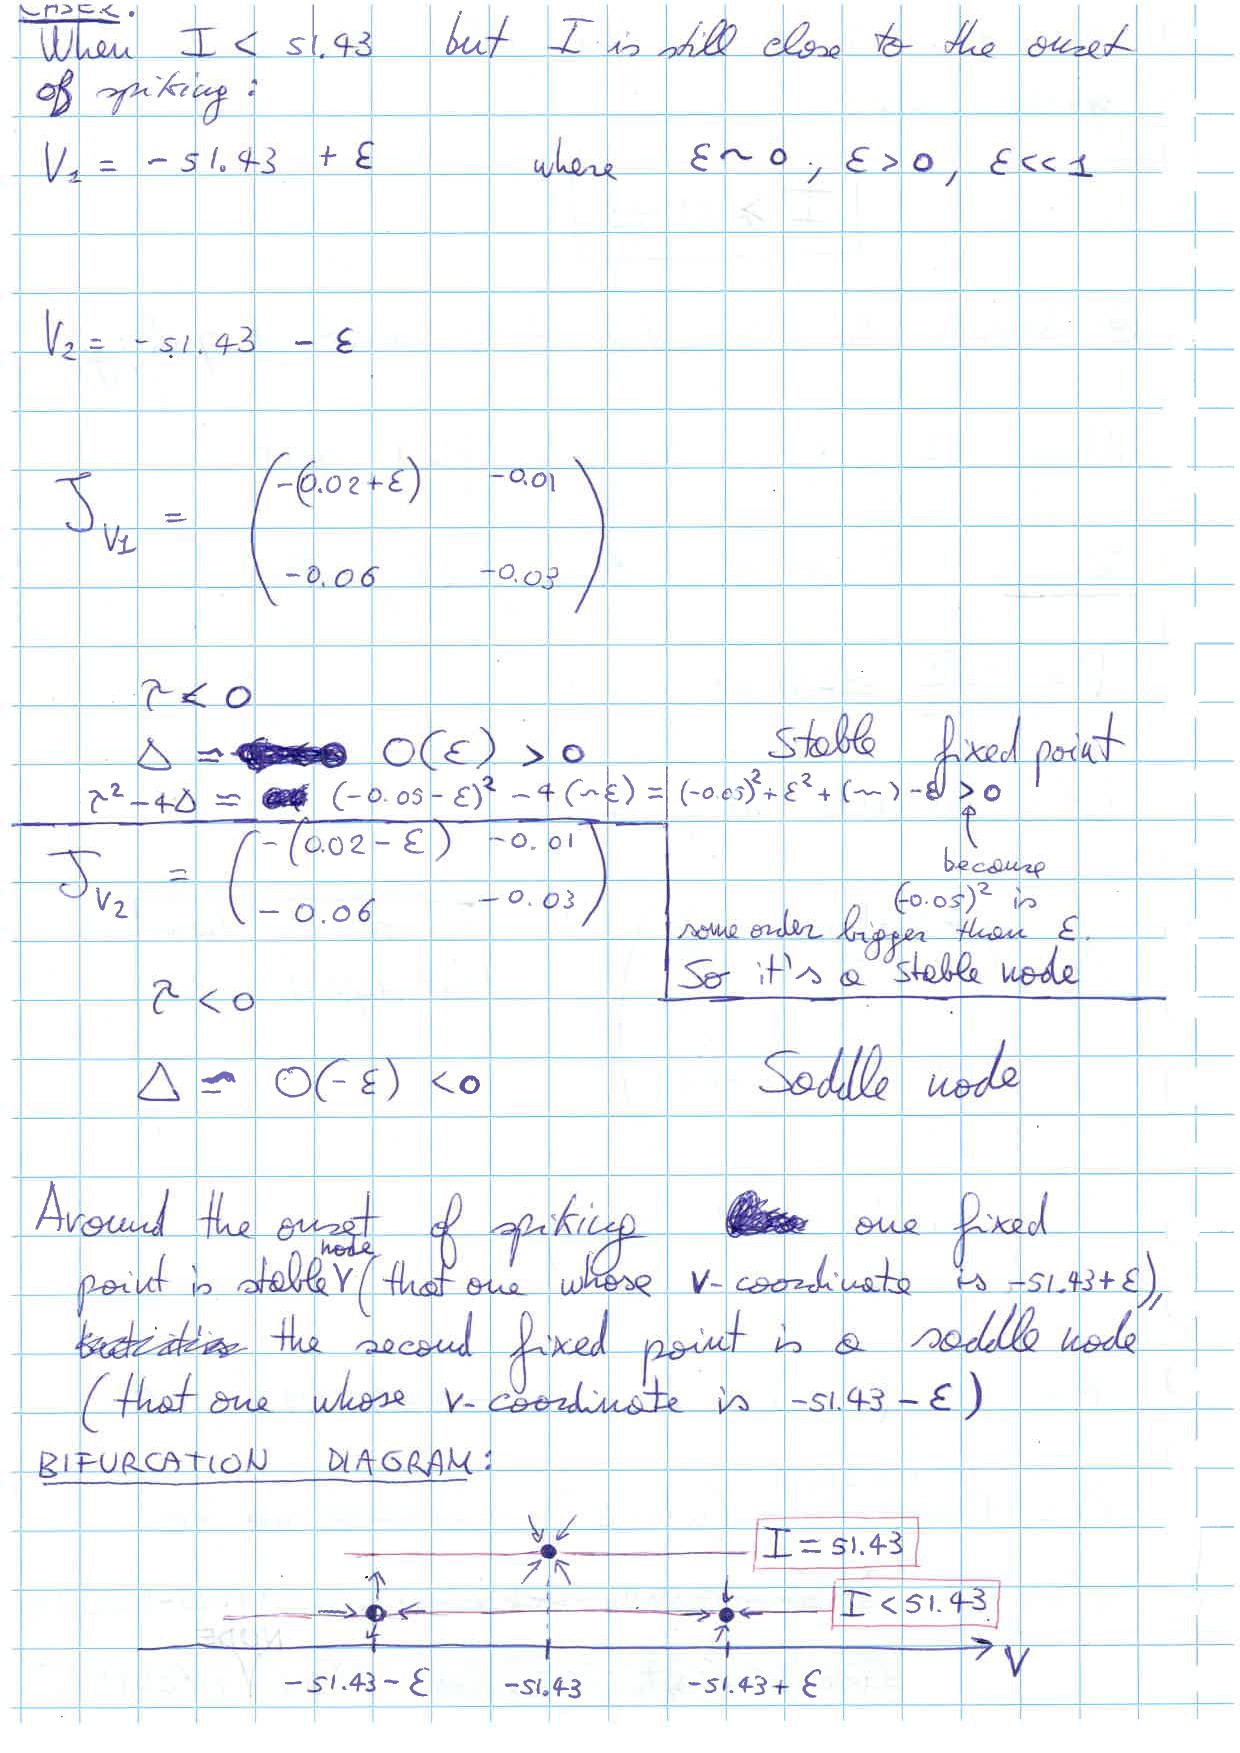 CASE 2.
When I < 51.43 but I is still close to the onset
of spiking:
V₁ = -51.43 + ε where ε ~ 0, ε > 0, ε << 1
V₂ = -51.43 - ε
J_V1 = ( -(0.02+ε) -0.01
-0.06 -0.03 )
τ < 0
Δ ≃ O(ε) > 0 Stable fixed point
τ² - 4Δ ≃ (-0.05 - ε)² - 4(~ε) = (-0.05)² + ε² + (~) - ε > 0
because
(-0.05)² is
some order bigger than ε.
So it's a stable node
J_V2 = ( -(0.02 - ε) -0.01
-0.06 -0.03 )
τ < 0
Δ ≃ O(-ε) < 0 Saddle node
Around the onset of spiking one fixed
point is stable node (that one whose V-coordinate is -51.43+ε),
the second fixed point is a saddle node
(that one whose V-coordinate is -51.43 - ε)
BIFURCATION DIAGRAM:
I = 51.43
I < 51.43
V
-51.43 - ε -51.43 -51.43 + ε